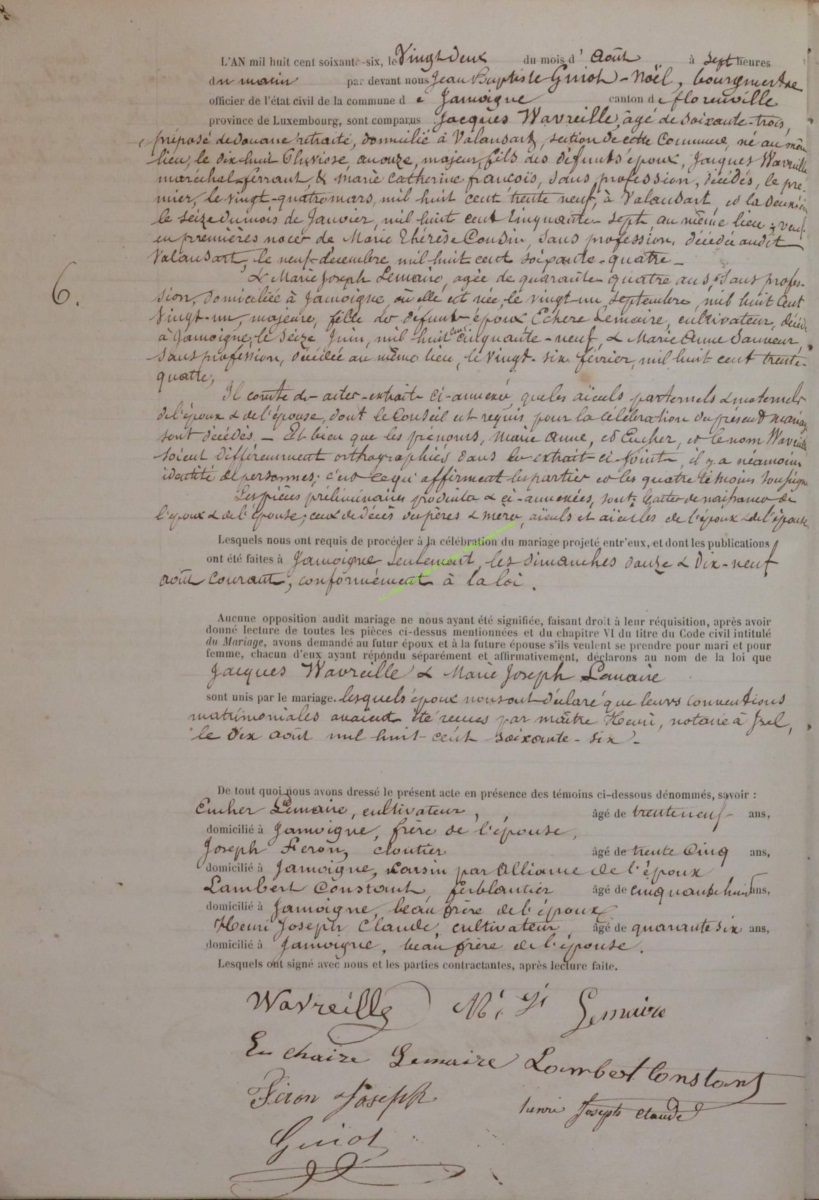 L'AN mil huit cent soixante-six, le Vingt deux du mois d' Août à sept heures
du matin par devant nous Jean Baptiste Guiot-Noël, bourgmestre
officier de l'état civil de la commune de Jamoigne canton de florenville
province de Luxembourg, sont comparus Jacques Wavreille, âgé de soixante-trois,
préposé de douane retraité, domicilié à Valansart, section de cette Commune, né au même
lieu, le dix-huit an onze, majeur, fils des défunts époux, Jacques Wavreille
maréchal-ferrant, & marie Catherine francois, sans profession, décédés, le pre-
mier, le vingt-quatre mars, mil huit cent trente neuf, à Valansart, et la deuxième
le seize du mois de Janvier, mil huit cent cinquante sept au même lieu, veuf
en premières noces de Marie Thérèse Cousin, sans profession, décédée audit
Valansart, le neuf décembre mil huit cent soixante-quatre _
6.
& Marie Joseph Lemaire, agée de quarante-quatre ans, sans profes-
sion, domiciliée à Jamoigne, où elle est née, le vingt-un Septembre, mil huit cent
vingt-un, majeure, fille des défunts époux Lemaire, cultivateur, décédé
à Jamoigne, le seize Juin, mil huit cent cinquante-neuf, & Marie Anne Sauveur,
sans profession, décédée au même lieu, le vingt-six février, mil huit cent trente-
quatre,
Il conste des actes-extraits ci-annexés, que les aïeuls paternels & maternels
de l'époux & de l'épouse, dont le Conseil est requis pour la célébration du présent mariage
sont décédés. _ Et bien que les prénoms, Marie Anne, et Eucher, et le nom Wavreille
soient différemment orthographiés dans les extraits ci-joints, il y a néanmoins
identité de personnes; c'est ce qu'affirment les parties et les quatre témoins soussignés
Les pièces préliminaires produites & ci-annexées, sont: l'acte de naissance de
l'époux & de l'épouse; ceux de décès des pères & mères, aïeuls et aïeules de l'époux & de l'épouse.
Lesquels nous ont requis de procéder à la célébration du mariage projeté entr'eux, et dont les publications
ont été faites à Jamoigne seulement, les dimanches douze & dix-neuf
août courant, conformément à la loi.
Aucune opposition audit mariage ne nous ayant été signifiée, faisant droit à leur réquisition, après avoir
donné lecture de toutes les pièces ci-dessus mentionnées et du chapitre VI du titre du Code civil intitulé
du Mariage, avons demandé au futur époux et à la future épouse s'ils veulent se prendre pour mari et pour
femme, chacun d'eux ayant répondu séparément et affirmativement, déclarons au nom de la loi que
Jacques Wavreille & Marie Joseph Lemaire
sont unis par le mariage. lesquels époux nous ont déclaré que leurs conventions
matrimoniales avaient été reçues par maître Henri, notaire à Izel,
le dix août mil huit-cent soixante-six.
De tout quoi nous avons dressé le présent acte en présence des témoins ci-dessous dénommés, savoir :
Eucher Lemaire, cultivateur, âgé de trente neuf ans,
domicilié à Jamoigne, frère de l'épouse,
Joseph Feron, cloutier âgé de trente cinq ans,
domicilié à Jamoigne, cousin par alliance de l'époux
Lambert Constant ferblantier âgé de cinquante huit ans,
domicilié à Jamoigne, beau frère de l'époux
Henri Joseph Claude, cultivateur, âgé de quarante six ans,
domicilié à Jamoigne, beau frère de l'épouse.
Lesquels ont signé avec nous et les parties contractantes, après lecture faite.
Wavreille M. J. Lemaire
Euchaire Lemaire Lambert Constant
Féron Joseph henri Joseph claude
Guiot